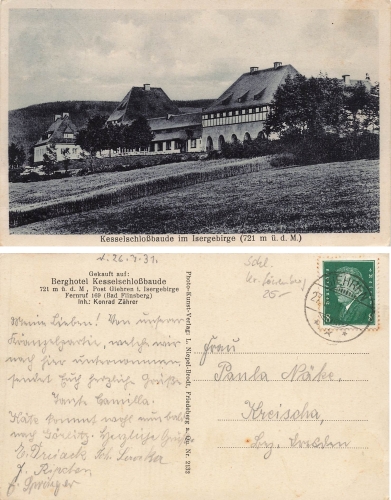 Kesselschloßbaude im Isergebirge (721 m ü. d. M.)
26.7.31.
Gekauft auf:
Berghotel Kesselschloßbaude
721 m ü. d. M., Post Giehren i. Isergebirge
Fernruf 169 (Bad Flinsberg)
Inh: Konrad Zährer
Photo-Kunst-Verlag: L. Niepel-Bredt, Friedeberg a. Qu. Nr. 2632
25.-
8 8
Meine Lieben! Von unserer
welche wir
nach hier unternommen,
sendet Euch herzliche Grüße
Tante Camilla.
Käte kommt wohl nun bald
nach Görlitz. Herzliche Grüße
Frau
Paula Näke,
Kreischa,
Bz. Dresden